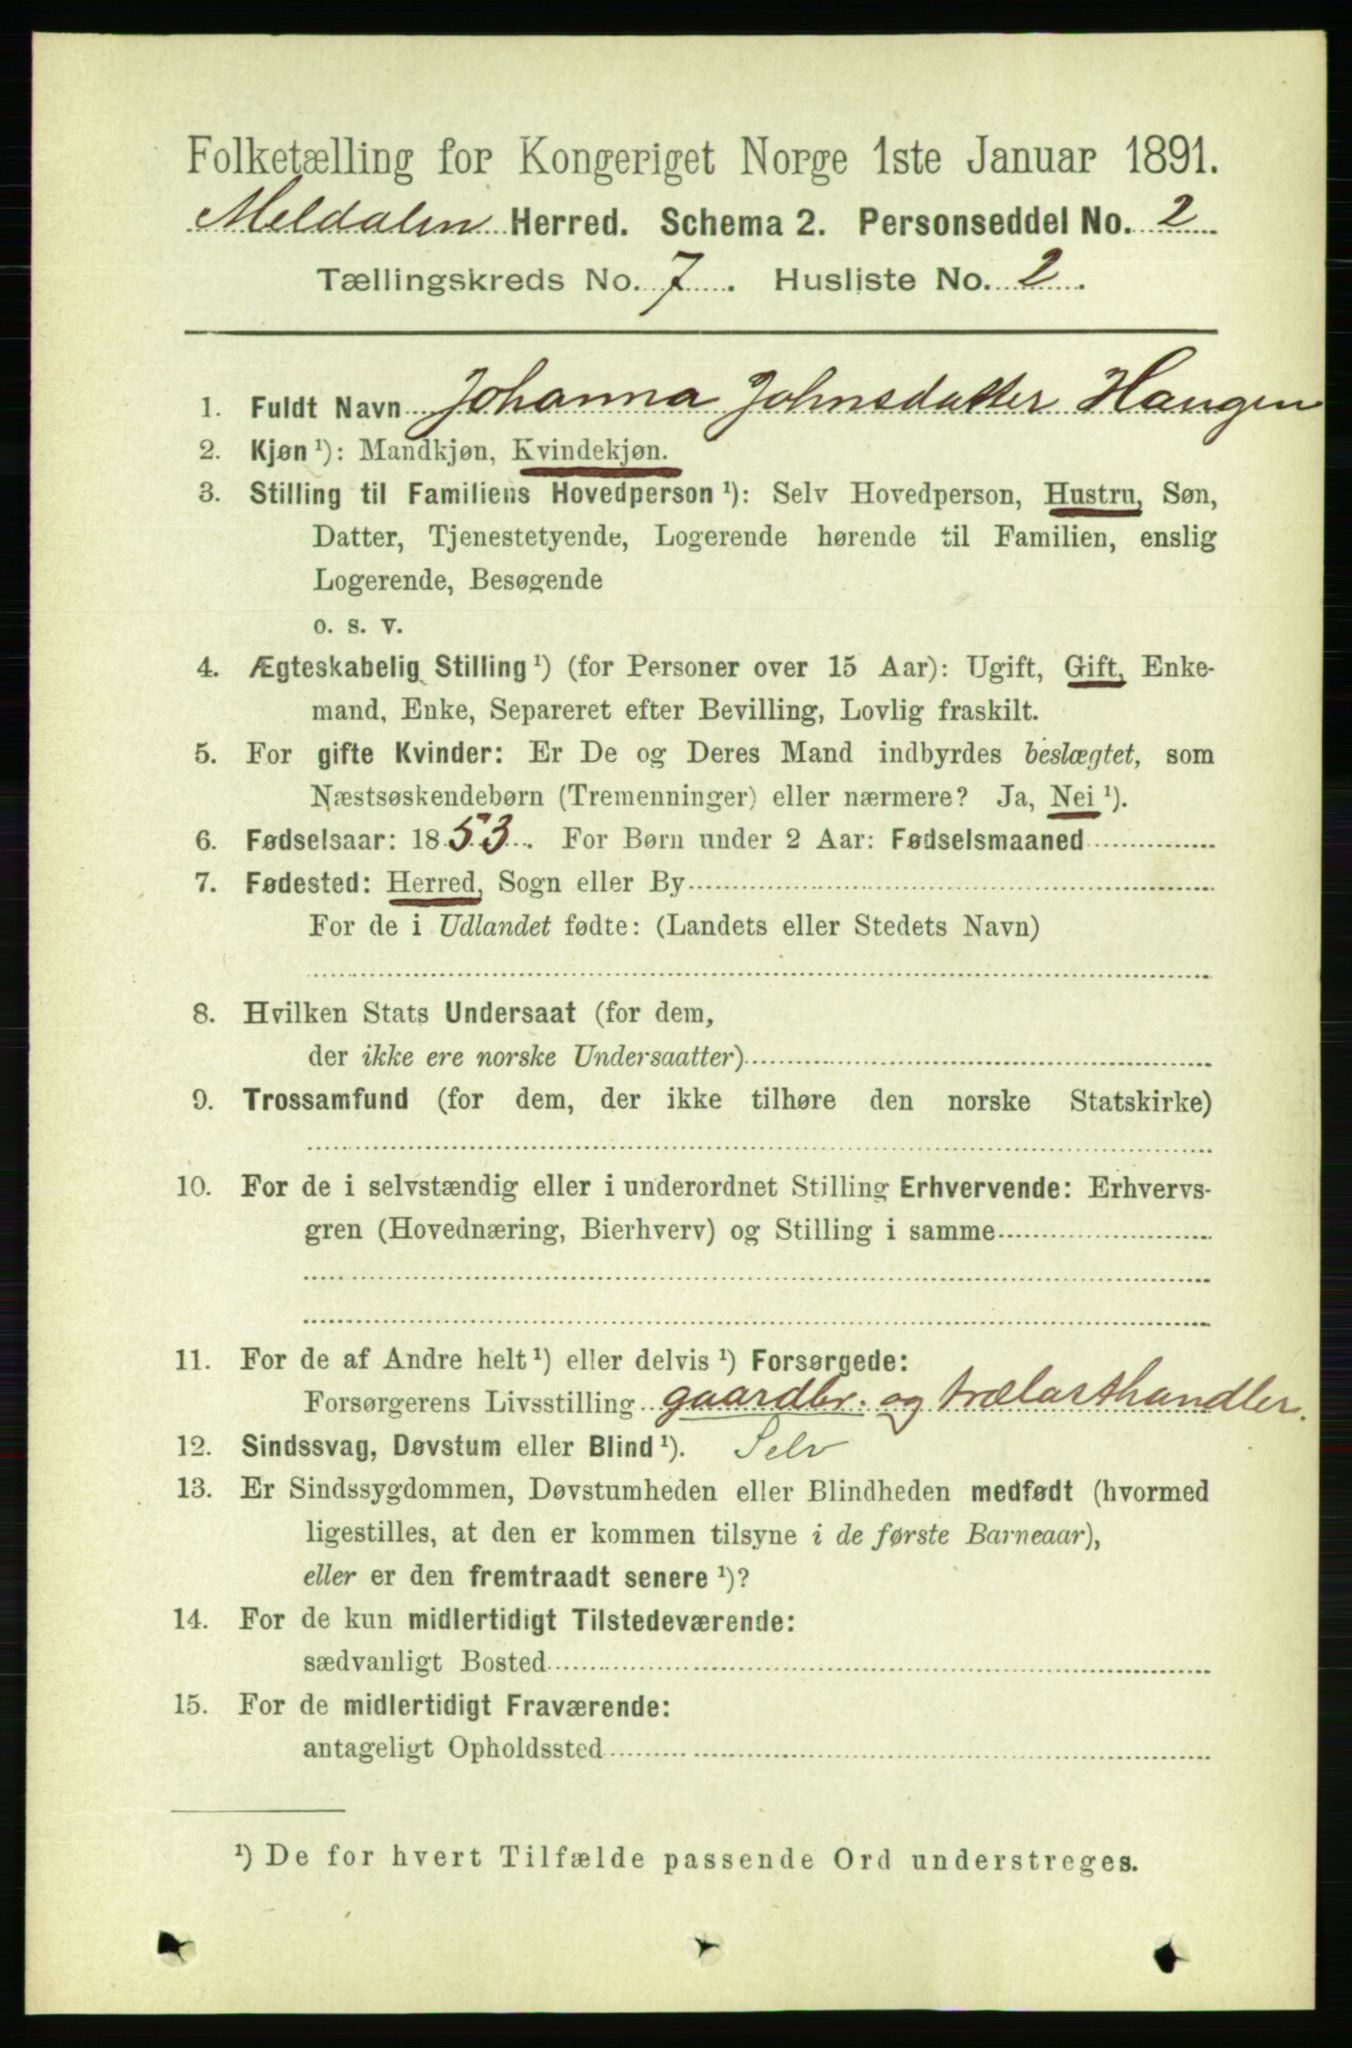 Folketælling for Kongeriget Norge 1ste Januar 1891.
Meldalen Herred. Schema 2. Personseddel No. 2
Tællingskreds No. 7. Husliste No. 2.
1. Fuldt Navn Johanna Johnsdatter Haugen
2. Kjøn ¹): Mandkjøn, Kvindekjøn.
3. Stilling til Familiens Hovedperson ¹): Selv Hovedperson, Hustru, Søn,
Datter, Tjenestetyende, Logerende hørende til Familien, enslig
Logerende, Besøgende
o. s. v.
4. Ægteskabelig Stilling ¹) (for Personer over 15 Aar): Ugift, Gift, Enke-
mand, Enke, Separeret efter Bevilling, Lovlig fraskilt.
5. For gifte Kvinder: Er De og Deres Mand indbyrdes beslægtet, som
Næstsøskendebørn (Tremenninger) eller nærmere? Ja, Nei ¹).
6. Fødselsaar: 1853. For Børn under 2 Aar: Fødselsmaaned
7. Fødested: Herred, Sogn eller By
For de i Udlandet fødte: (Landets eller Stedets Navn)
8. Hvilken Stats Undersaat (for dem,
der ikke ere norske Undersaatter)
9. Trossamfund (for dem, der ikke tilhøre den norske Statskirke)
10. For de i selvstændig eller i underordnet Stilling Erhvervende: Erhvervs-
gren (Hovednæring, Bierhverv) og Stilling i samme
11. For de af Andre helt ¹) eller delvis ¹) Forsørgede:
Forsørgerens Livsstilling gaardbr. og trælasthandler.
12. Sindssvag, Døvstum eller Blind ¹). Selv
13. Er Sindssygdommen, Døvstumheden eller Blindheden medfødt (hvormed
ligestilles, at den er kommen tilsyne i de første Barneaar),
eller er den fremtraadt senere ¹)?
14. For de kun midlertidigt Tilstedeværende:
sædvanligt Bosted
15. For de midlertidigt Fraværende:
antageligt Opholdssted
¹) De for hvert Tilfælde passende Ord understreges.